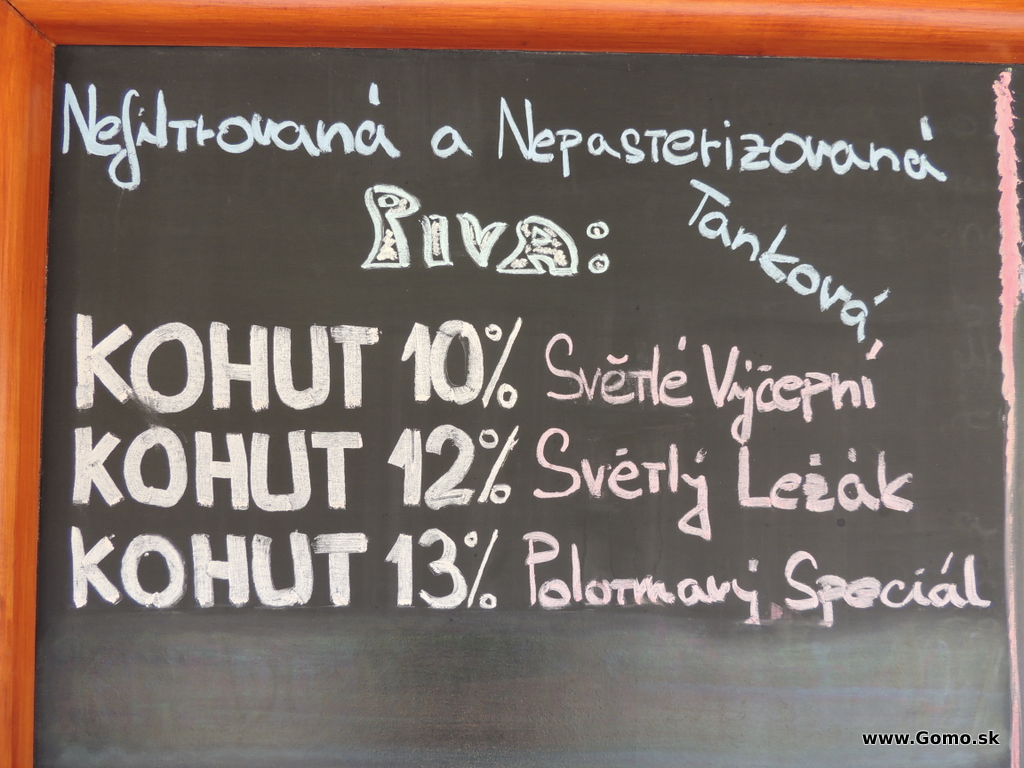 Nefiltrovaná a Nepasterizovaná
Tanková
Piva:
KOHUT 10% Světlé Výčepní
KOHUT 12% Světlý Ležák
KOHUT 13% Polotmavý Speciál
www.Gomo.sk